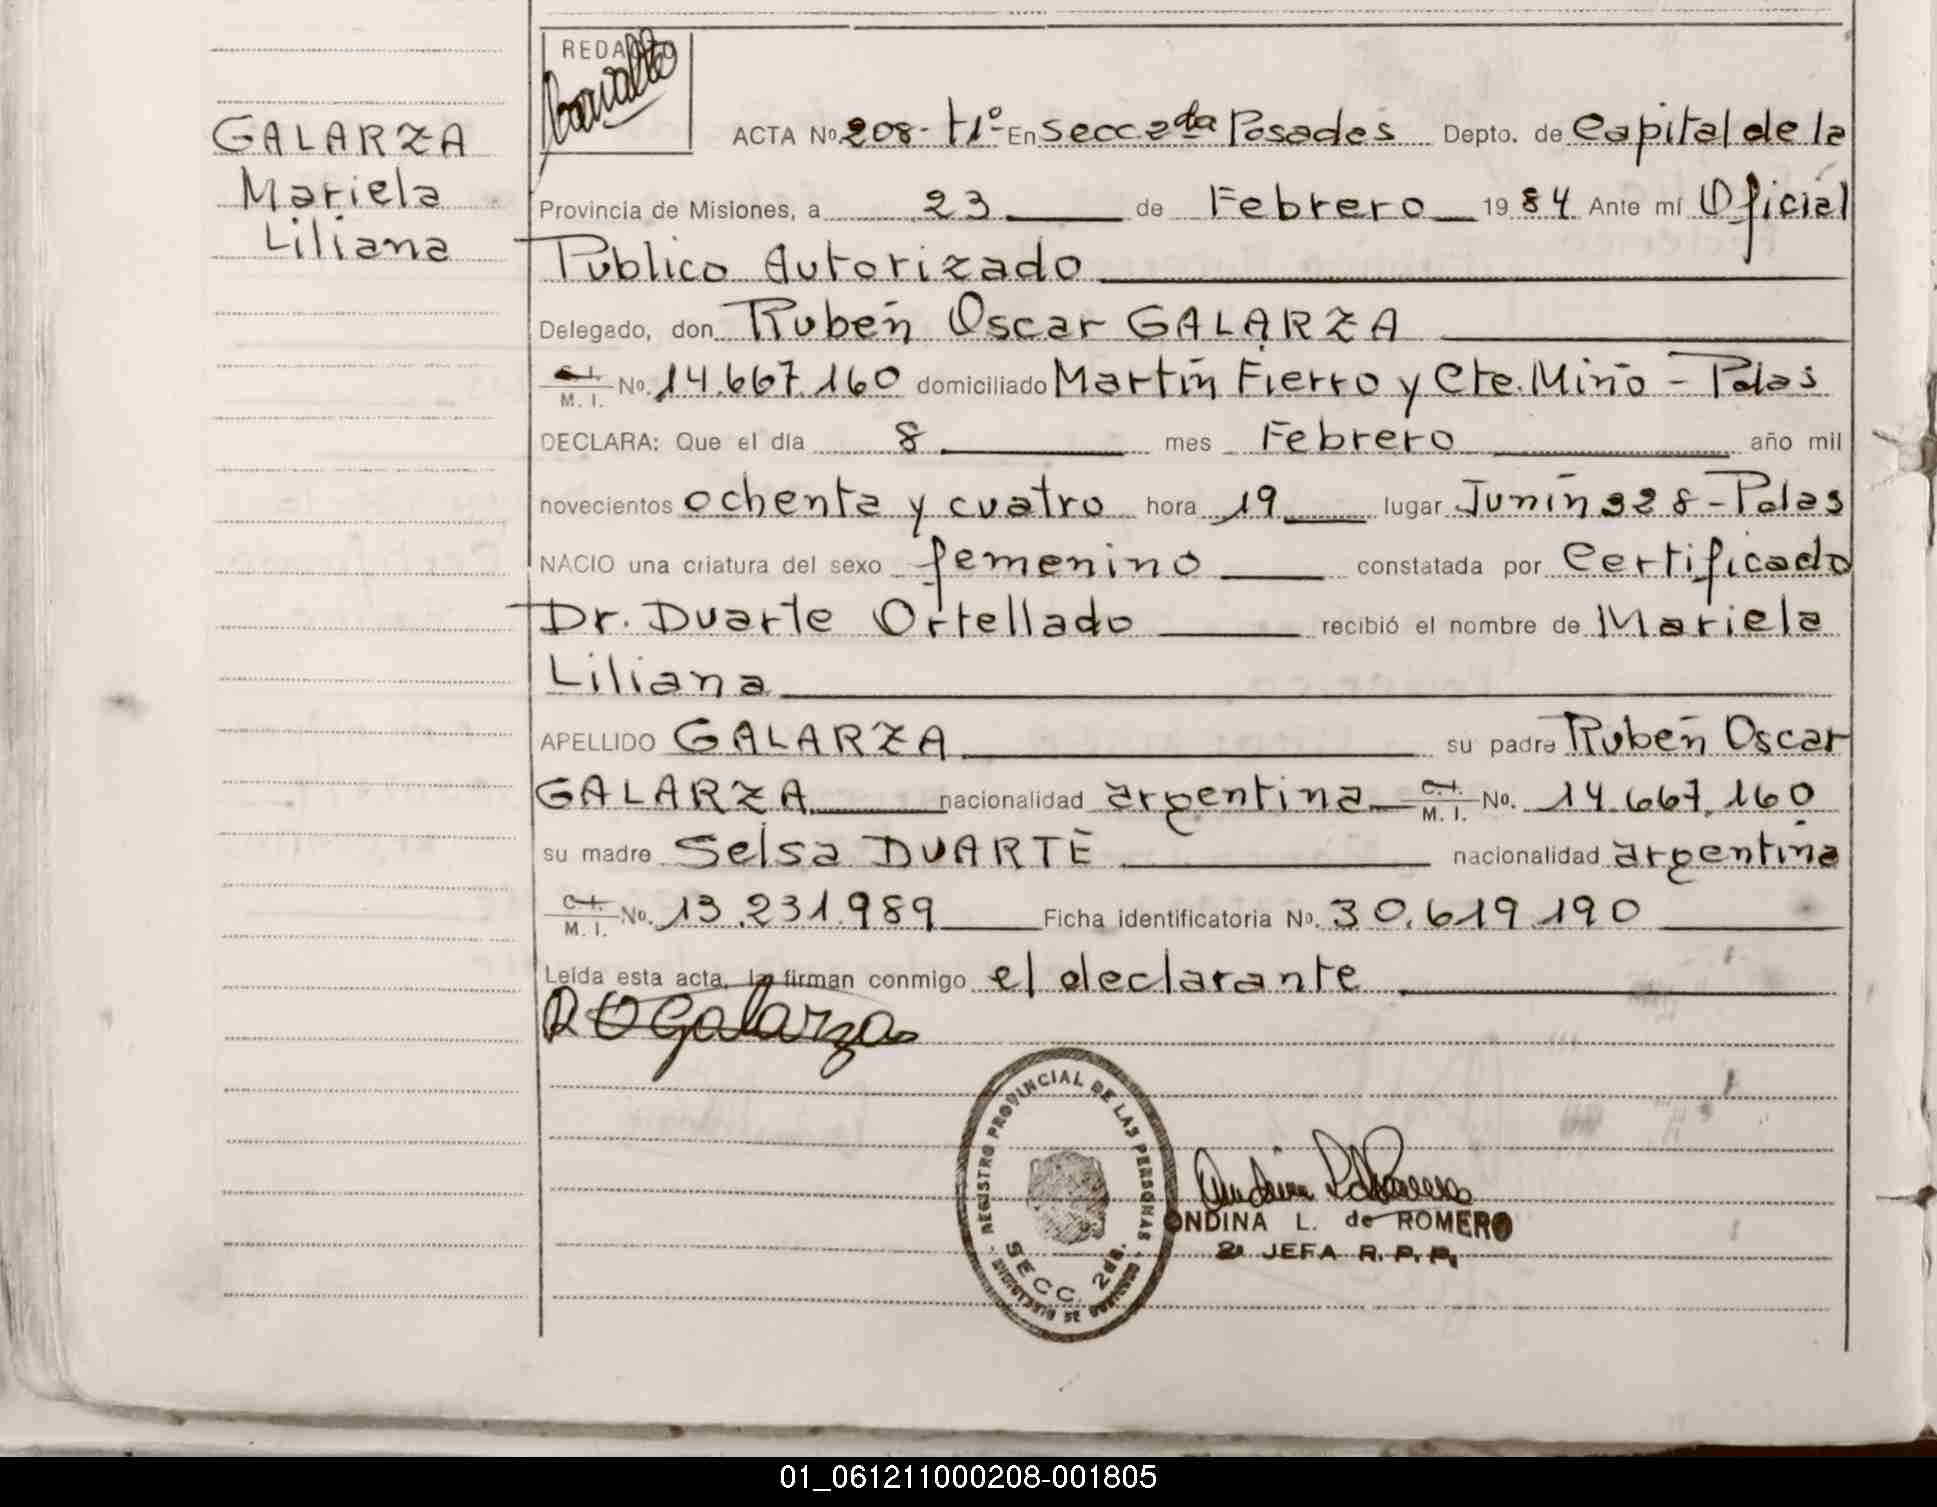 GALARZA
Mariela
Liliana
REDACTO
ACTA Nº 208- t1º- En Secc 2da Posadas Depto. de Capital de la
Provincia de Misiones, a 23 de Febrero 19 84 Ante mí Oficial
Publico Autorizado
Delegado, don Rubén Oscar GALARZA
C. I. M. I. No. 14.667.160 domiciliado Martín Fierro y Cte. Miño - Pdas
DECLARA: Que el día 8 mes Febrero año mil
novecientos ochenta y cuatro hora 19 lugar Junín 328 - Pdas
NACIO una criatura del sexo femenino constatada por Certificado
Dr. Duarte Ortellado recibió el nombre de Mariela
Liliana
APELLIDO GALARZA su padre Rubén Oscar
GALARZA nacionalidad argentina C. I. M. I. No. 14.667.160
su madre Selsa DUARTE nacionalidad argentina
C. I. M. I. No. 13.231.989 Ficha identificatoria Nº. 30.619.190
Leída esta acta, la firman conmigo el declarante
R O Galarza
REGISTRO PROVINCIAL DE LAS PERSONAS
SECC. 2da.
ONDINA L. de ROMERO
2ª JEFA R. P. P.
01_061211000208-001805